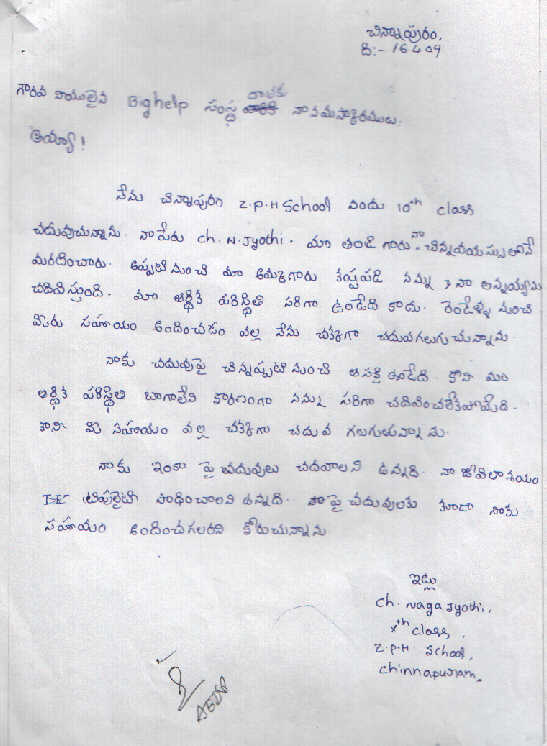 చిన్నాపురం,
ది:- 16-4-09
గౌరవ నీయులైన Big help సంస్థ వారికి నా నమస్కారములు.
అయ్యా!
నేను చిన్నాపురం Z.P.H School నందు 10th class
చదువుచున్నాను. నా పేరు Ch. N. Jyothi. మా తండ్రి గారు నా చిన్నవయస్సులోనే
మరణించారు. అప్పటి నుంచి మా అమ్మగారు కష్టపడి నన్ను నా అన్నయ్యను
చదివిస్తుంది. మా ఆర్థిక పరిస్థితి సరిగా ఉండేది కాదు. రెండేళ్ళ నుంచి
మీరు సహాయం అందించడం వల్ల నేను చక్కగా చదువగలుగుచున్నాను
నాకు చదువుపై చిన్నప్పటి నుంచి ఆసక్తి ఉండేది. కాని మా
ఆర్థిక పరిస్థితి బాగాలేని కారణంగా నన్ను సరిగా చదివించలేకపోయేది.
కాని మీ సహాయం వల్ల చక్కగా చదువ గలుగుతున్నాను.
నాకు ఇంకా పై చదువులు చదవాలని ఉన్నది. నా జీవితాశయం
సాధించాలని ఉన్నది. నా పై చదువులకు కూడా నాకు
సహాయం అందించగలరని కోరుచున్నాను
ఇట్లు
Ch. Naga Jyothi,
Xth class,
Z.P.H School,
Chinnapuram.